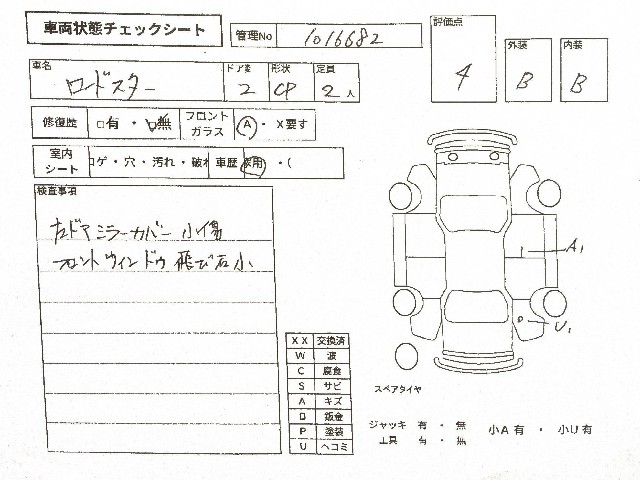 車両状態チェックシート
管理No 1016682
評価点 4
外装 B
内装 B
車名 ロードスター
ドア数 2
形状 CP
定員 2人
修復歴 □有・□無
フロントガラス A・X要す
室内シート コゲ・穴・汚れ・破れ
車歴 家用・(
検査事項
左ドアミラーカバー 小傷
フロントウィンドウ 飛び石小
A1
U1
スペアタイヤ
XX 交換済
W 波
C 腐食
S サビ
A キズ
ロ 鈑金
P 塗装
U ヘコミ
ジャッキ 有・無
工具 有・無
小A有・小U有